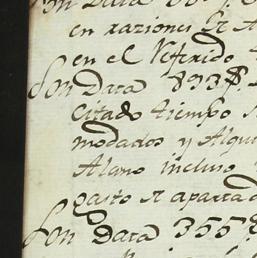 Son Data
en raziones de
en el Referido
Son Data 893
Citado tiempo
modados y Alqui
Alano incluso
gasto de apartad
Son Data 355